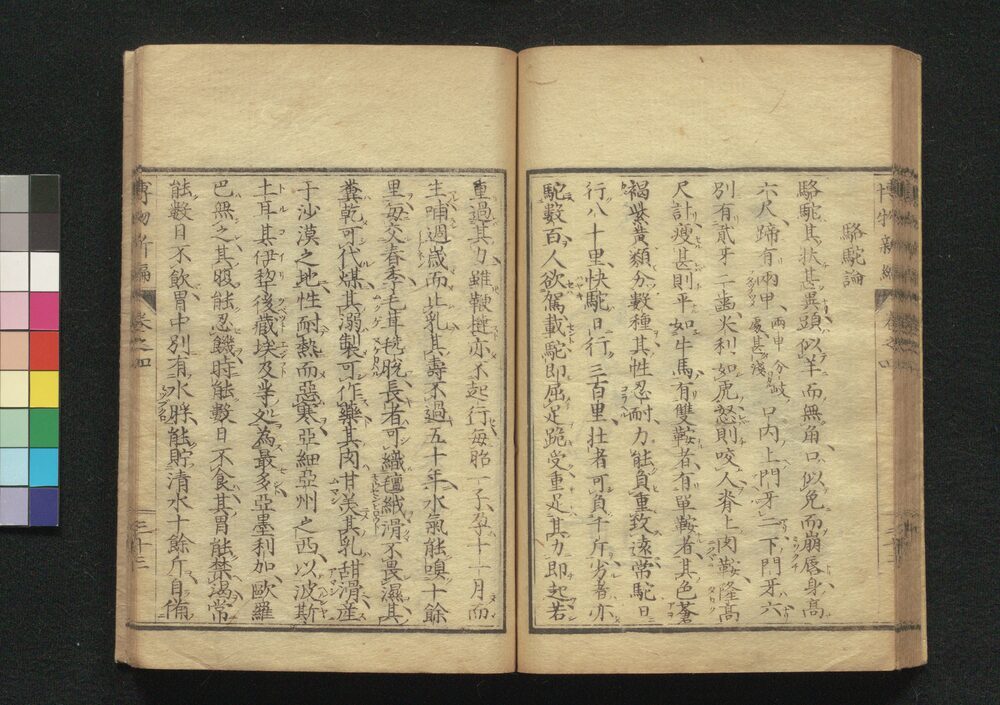 駱駝論
駱駝其状甚異頭似羊而無角口似兔而崩唇身高
六尺蹄有兩甲兩甲分岐處甚淺口内上門牙二下門牙六
別有貳牙二齒尖利如虎怒則咬人脊上肉鞍隆高
尺計瘦甚則平如牛馬有雙鞍者有單鞍者其色蒼
褐紫黄類分數種其性忍耐力能負重致遠常駝日
行八十里快駝日行三百里壮者可負千斤劣者亦
駝數百人欲駕載駝即屈足跪受重足其力即起若
重過其力雖鞭撻亦不起行毎胎一子孕十一月而
生哺週歳而止乳其壽不過五十年水氣能嗅十餘
里毎交春季毛茸毯脱長者可織氊絨滑不畏濕其
糞乾可代煤其溺製可作藥其肉甘美其乳甜滑産
于沙漠之地性耐熱而惡寒亞細亞州之西以波斯
土耳其伊犂後藏埃及等処為最多亞墨利加歐羅
巴無之其腹能忍饑時能數日不食其胃能禁渇常
能數日不飲胃中別有水脬能貯清水十餘斤自備
博物新編
卷之四
三十三